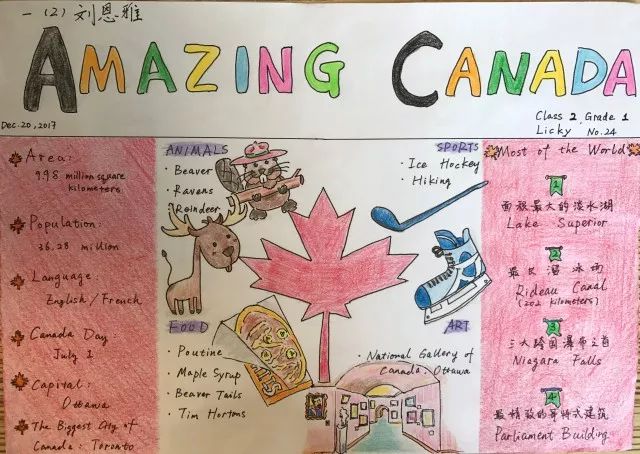 一（2）刘恩雅
AMAZING CANADA
Dec.20,2017
Class 2 Grade 1
Licky No.24
Area:
998 million square
kilometers
Population:
36.28 million
Language:
English/French
Canada Day:
July 1
Capital:
Ottawa
The Biggest City of
Canada: Toronto
ANIMALS
· Beaver
· Ravens
· Reindeer
FOOD
· Poutine
· Maple Syrup
· Beaver Tails
· Tim Hortons
SPORTS
· Ice Hockey
· Hiking
ART
· National Gallery of
Canada: Ottawa
Most of the World
1
面积最大的淡水湖
Lake Superior
2
最长溜冰场
Rideau Canal
(202 kilometers)
3
三大跨国瀑布之首
Niagara Falls
4
最精致的哥特式建筑
Parliament Building